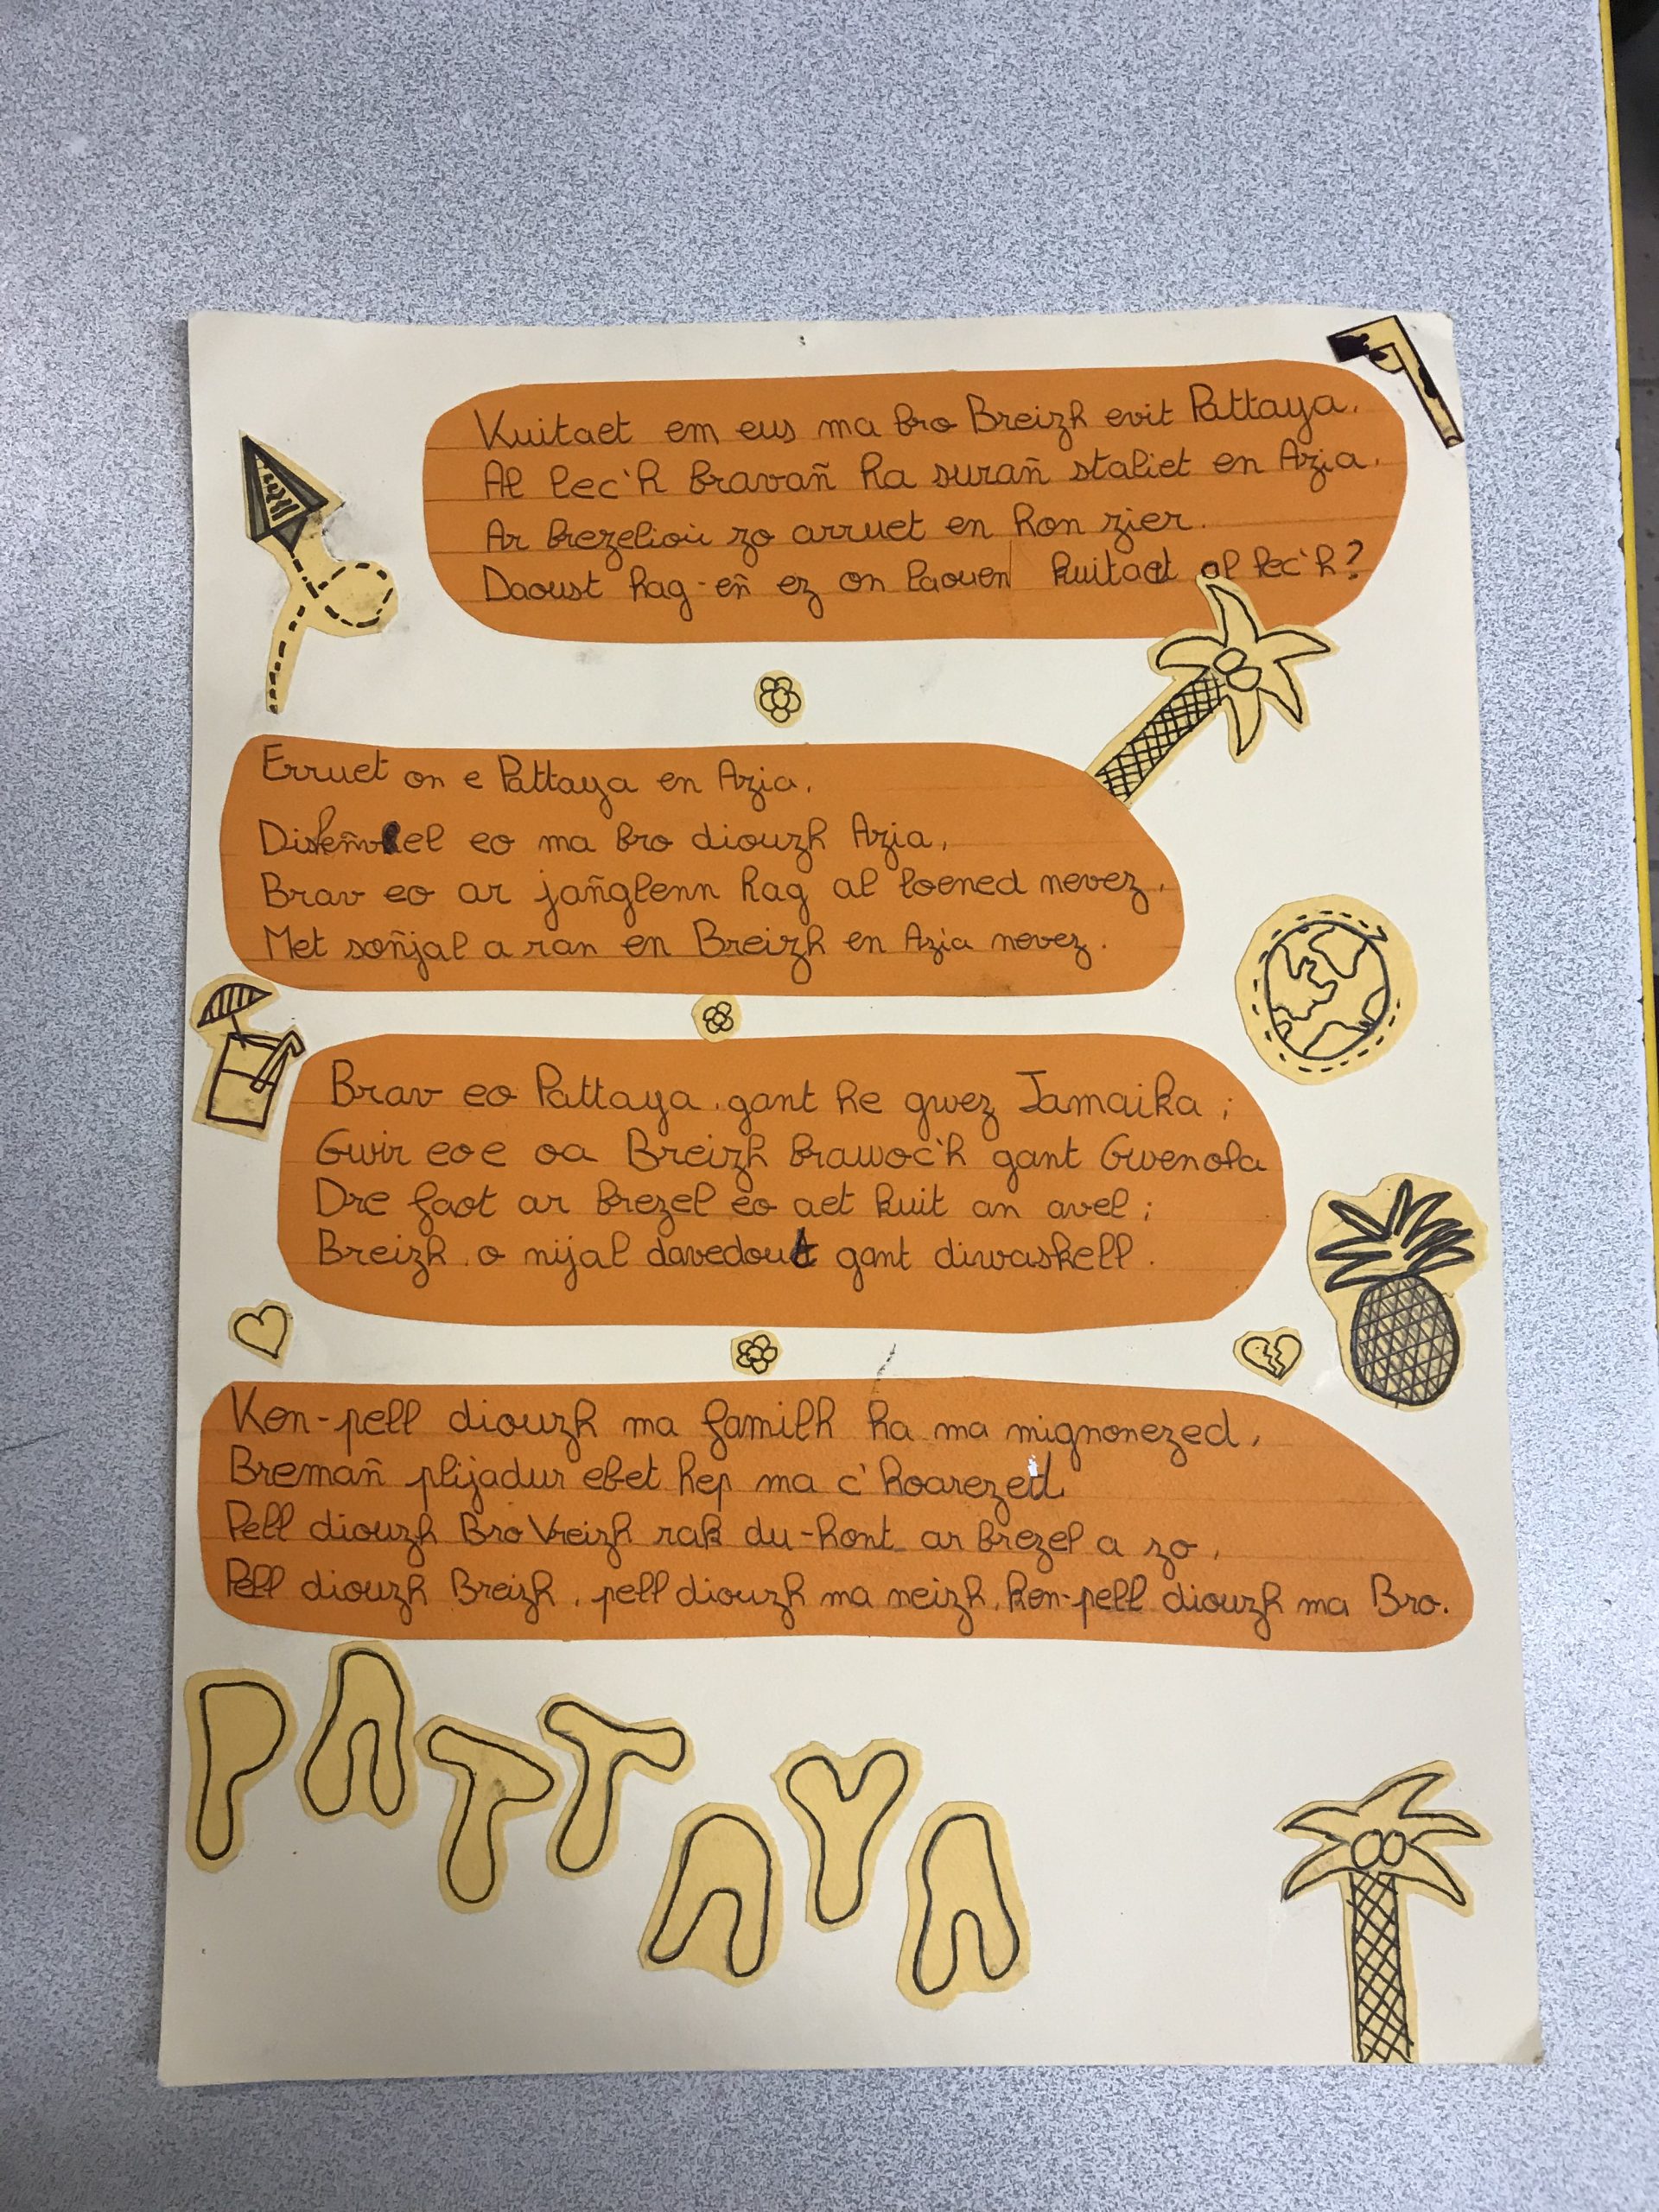 Kuitaet em eus ma bro Breizh evit Pattaya.
Al lec'h bravañ ha surañ staliet en Azia.
Ar brezelioù zo arruet en hon zier.
Daoust hag-eñ ez on laouen kuitaet al lec'h?
Erruet on e Pattaya en Azia,
Disheñvel eo ma bro diouzh Azia,
Brav eo ar jañglenn hag al loened nevez,
Met soñjal a ran en Breizh en Azia nevez.
Brav eo Pattaya, gant he gwez Jamaika;
Gwir eo e oa Breizh brawoc'h gant Gwenola
Dre faot ar brezel eo aet kuit an avel;
Breizh o nijal davedout gant diwaskell.
Ken-pell diouzh ma familh ha ma mignonezed,
Bremañ plijadur ebet hep ma c'hoarezed,
Pell diouzh Bro Vreizh rak du-hont ar brezel a zo,
Pell diouzh Breizh, pell diouzh ma neizh, ken-pell diouzh ma Bro.
PATTAYA